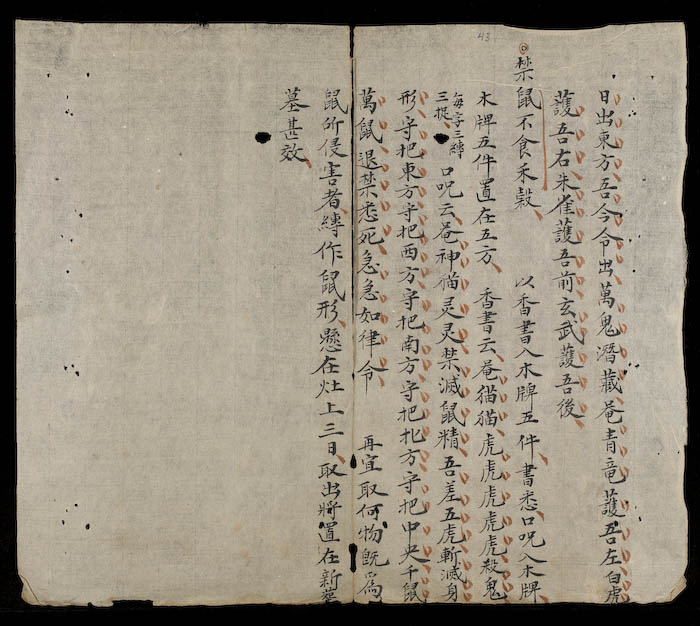 43
日出東方吾今令出萬鬼潛藏菴青竜護吾左白虎
護吾右朱雀護吾前玄武護吾後
禁鼠不食禾穀 以香書入木牌五件書悉口呪入木牌
木牌五件置在五方 香書云菴猫猫虎虎虎虎虎殺鬼
每字三縛三捉 口呪云菴神猫灵灵禁滅鼠精吾差五虎斬滅身
形守把東方守把西方守把南方守把北方守把中央千鼠
萬鼠退禁悉死急急如律令 再宜取何物既為
鼠所侵害者縛作鼠形懸在灶上三日取出將置在新塟
墓甚效